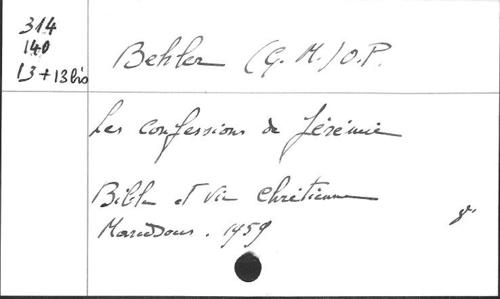 314
140
13 + 13 bis
Behler (G. M.) O.P.
Les confessions de Jérémie
Bible et vie chrétienne
Maredsous. 1959